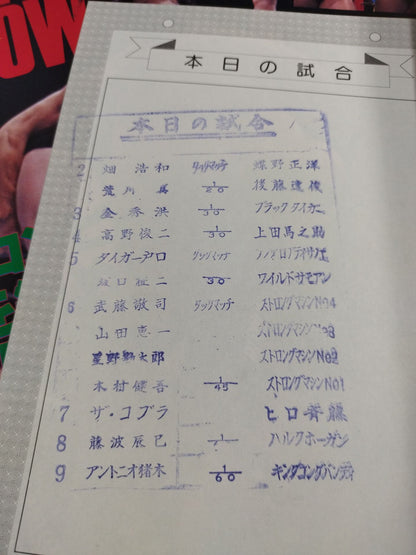 OW
本日の試合
本日の試合
2 畑 浩和 タッグマッチ 蝶野正洋
荒川 真 1/20 後藤達俊
3 金秀洪 1/30 ブラックタイガー
4 高野俊二 1/30 上田馬之助
5 タイガーデロ タッグマッチ
坂口征二 1/30 ワイルドサモアン
6 武藤敬司 タッグマッチ ストロングマシンNo4
山田恵一 ストロングマシンNo3
星野勘太郎 ストロングマシンNo2
木村健吾 1/45 ストロングマシンNo1
7 ザ・コブラ ヒロ斉藤
8 藤波辰巳 ハルクホーガン
9 アントニオ猪木 1/60 キングコングバンディ